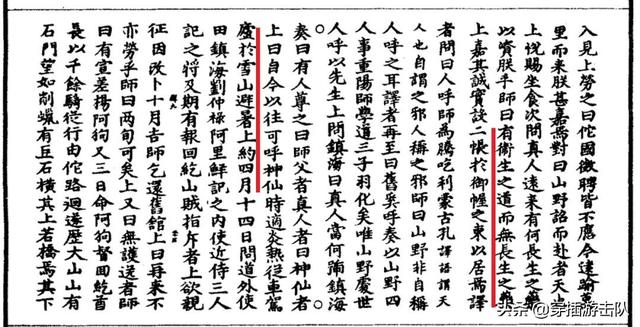 入見上勞之曰佗國徵聘皆不應今遠踰萬
里而來朕甚嘉焉對曰山野詔而赴者天也
上悅賜坐食次問真人遠來有何長生之藥
以資朕乎師曰有衛生之道而無長生之藥
上嘉其誠實設二帳於御幄之東以居焉譯
者問曰人呼師為騰吃利蒙古孔譯語謂天
人也自謂之邪人稱之邪師曰山野非自稱
人呼之耳譯者再至曰舊奚呼奏以山野四
人事重陽師學道三子羽化矣唯山野處世
人呼以先生上問鎮海曰真人當何號鎮海
奏曰有人尊之曰師父者真人者曰神仙者
上曰自今以往可呼神仙時適炎熱從車駕
廬於雪山避暑上約四月十四日問道外使
田鎮海劉仲祿阿里鮮記之內使近侍三人
記之將及期有報回紇山賊指斥者上欲親
征因改卜十月吉師乞還舊館上曰再來不
亦勞乎師曰兩旬可矣上又曰無護送者師
曰有宣差楊阿狗又三日命阿狗督回紇酋
長以千餘騎從行由佗路迴遂歷大山山有
石門望如削蠟有巨石橫其上若橋焉其下
头条 @穿插游击队